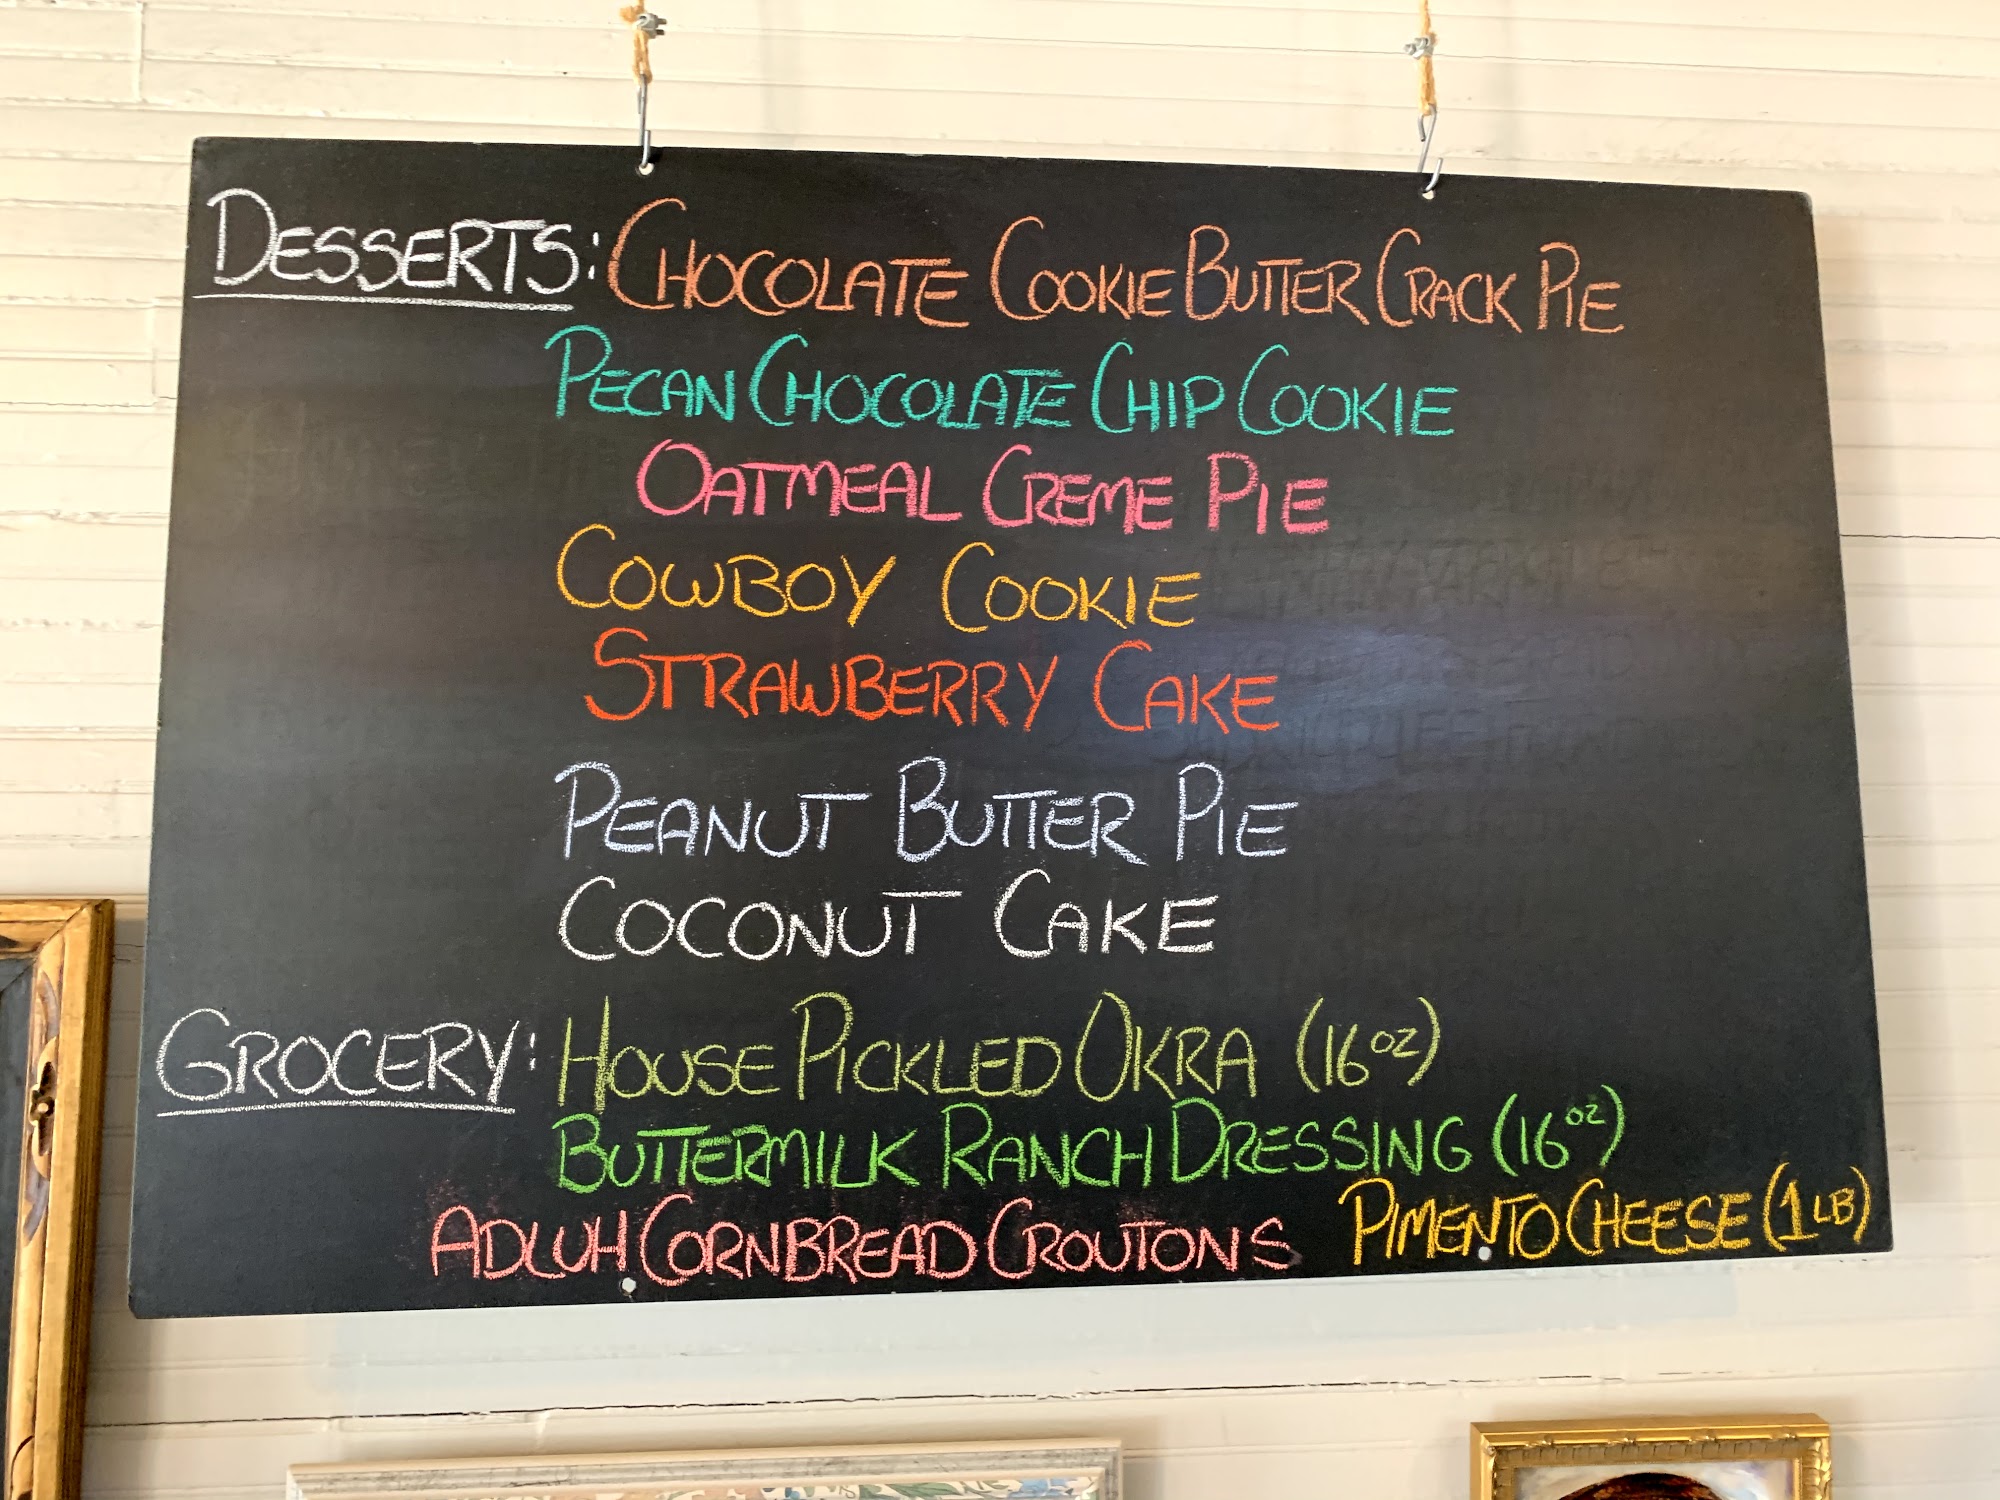 DESSERTS: CHOCOLATE COOKIE BUTTER CRACK PIE
PECAN CHOCOLATE CHIP COOKIE
OATMEAL CREME PIE
COWBOY COOKIE
STRAWBERRY CAKE
PEANUT BUTTER PIE
COCONUT CAKE
GROCERY: HOUSE PICKLED OKRA (16 OZ)
BUTTERMILK RANCH DRESSING (16 OZ)
ADLUH CORNBREAD CROUTONS PIMENTO CHEESE (1 LB)